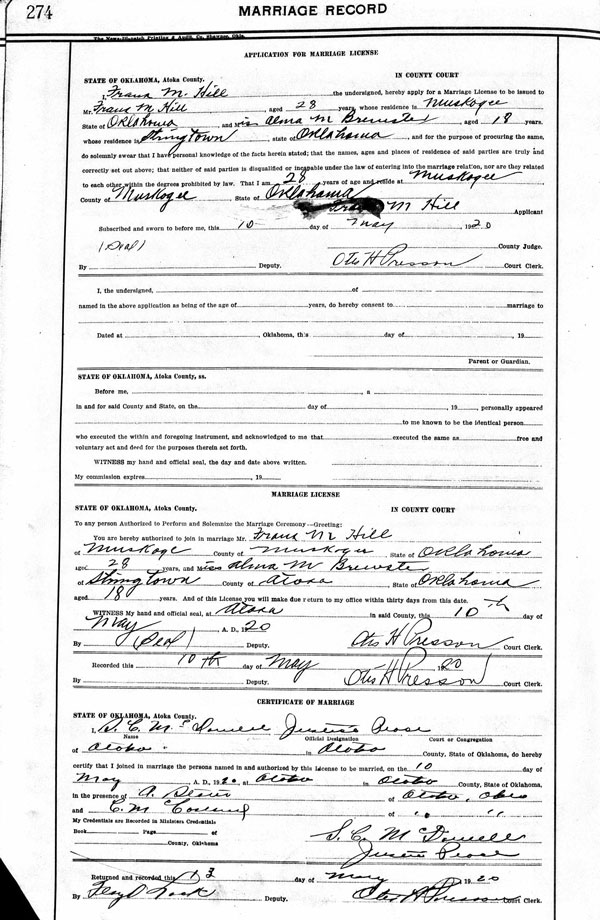 274
MARRIAGE RECORD
The News-Dispatch Printing & Audit Co. Shawnee, Okla.
APPLICATION FOR MARRIAGE LICENSE
STATE OF OKLAHOMA, Atoka County. IN COUNTY COURT
I, Frans M. Hill the undersigned, hereby apply for a Marriage License to be issued to
Mr. Frans M Hill, aged 28 years, whose residence is Muskogee
State of Oklahoma, and Miss Alma M Brewster, aged 18 years,
whose residence is Stringtown, state of Oklahoma, and for the purpose of procuring the same,
do solemnly swear that I have personal knowledge of the facts herein stated; that the names, ages and places of residence of said parties are truly and
correctly set out above; that neither of said parties is disqualified or incapable under the law of entering into the marriage relation, nor are they related
to each other within the degrees prohibited by law. That I am 28 years of age and reside at Muskogee
County of Muskogee, State of Oklahoma
M Hill Applicant
Subscribed and sworn to before me, this 10 day of May, 1920
(Seal) County Judge.
By Deputy. Otis H Presson Court Clerk.
I, the undersigned, of
named in the above application as being of the age of years, do hereby consent to marriage to
Dated at , Oklahoma, this day of , 19
Parent or Guardian.
STATE OF OKLAHOMA, Atoka County, ss.
Before me, , a
in and for said County and State, on the day of , 19 , personally appeared
to me known to be the identical person
who executed the within and foregoing instrument, and acknowledged to me that executed the same as free and
voluntary act and deed for the purposes therein set forth.
WITNESS my hand and official seal, the day and date above written.
My commission expires , 19
MARRIAGE LICENSE
STATE OF OKLAHOMA, Atoka County. IN COUNTY COURT
To any person Authorized to Perform and Solemnize the Marriage Ceremony—Greeting:
You are hereby authorized to join in marriage Mr. Frans M Hill
of Muskogee County of Muskogee, State of Oklahoma
aged 28 years, and Miss Alma M Brewster
of Stringtown County of Atoka, State of Oklahoma
aged 18 years. And of this License you will make due return to my office within thirty days from this date.
WITNESS My hand and official seal, at Atoka in said County, this 10th day of
May A. D., 1920
By (Seal) Deputy. Otis H Presson Court Clerk.
Recorded this 10th day of May 1920
By Deputy. Otis H Presson Court Clerk.
CERTIFICATE OF MARRIAGE
STATE OF OKLAHOMA, Atoka County.
I, S. C. McDowell Justice Peace
Name Official Designation Court or Congregation
of Atoka in Atoka County, State of Oklahoma, do hereby
certify that I joined in marriage the persons named in and authorized by this License to be married, on the 10 day of
May A. D., 1920 at Atoka in Atoka County, State of Oklahoma,
in the presence of A. of Atoka, Okla
and C. M of " "
My Credentials are Recorded in Ministers Credentials
Book Page of S. C. McDowell
County, Oklahoma Justice Peace
Returned and recorded this 13 day of May 1920
By Floyd Deputy. Otis H Presson Court Clerk.